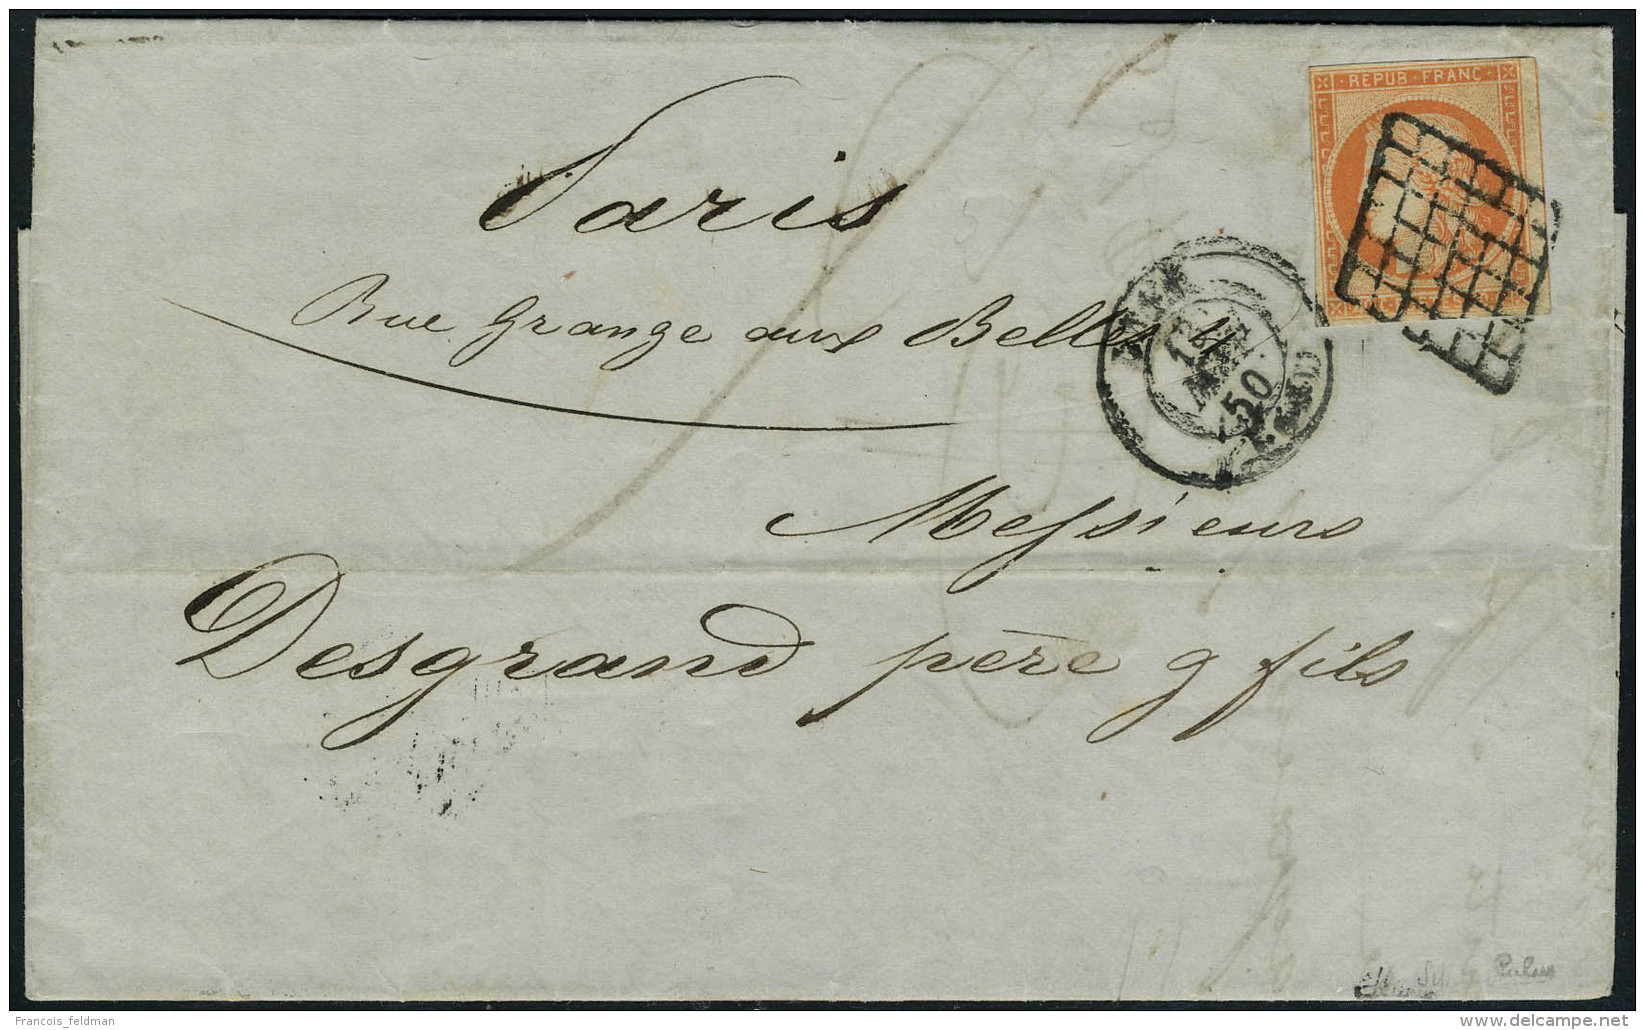 REPUB·FRANC·
Paris
Rue Grange aux Belles
50
Messieurs
Desgrand père & fils
Francois_feldman
www.delcampe.net